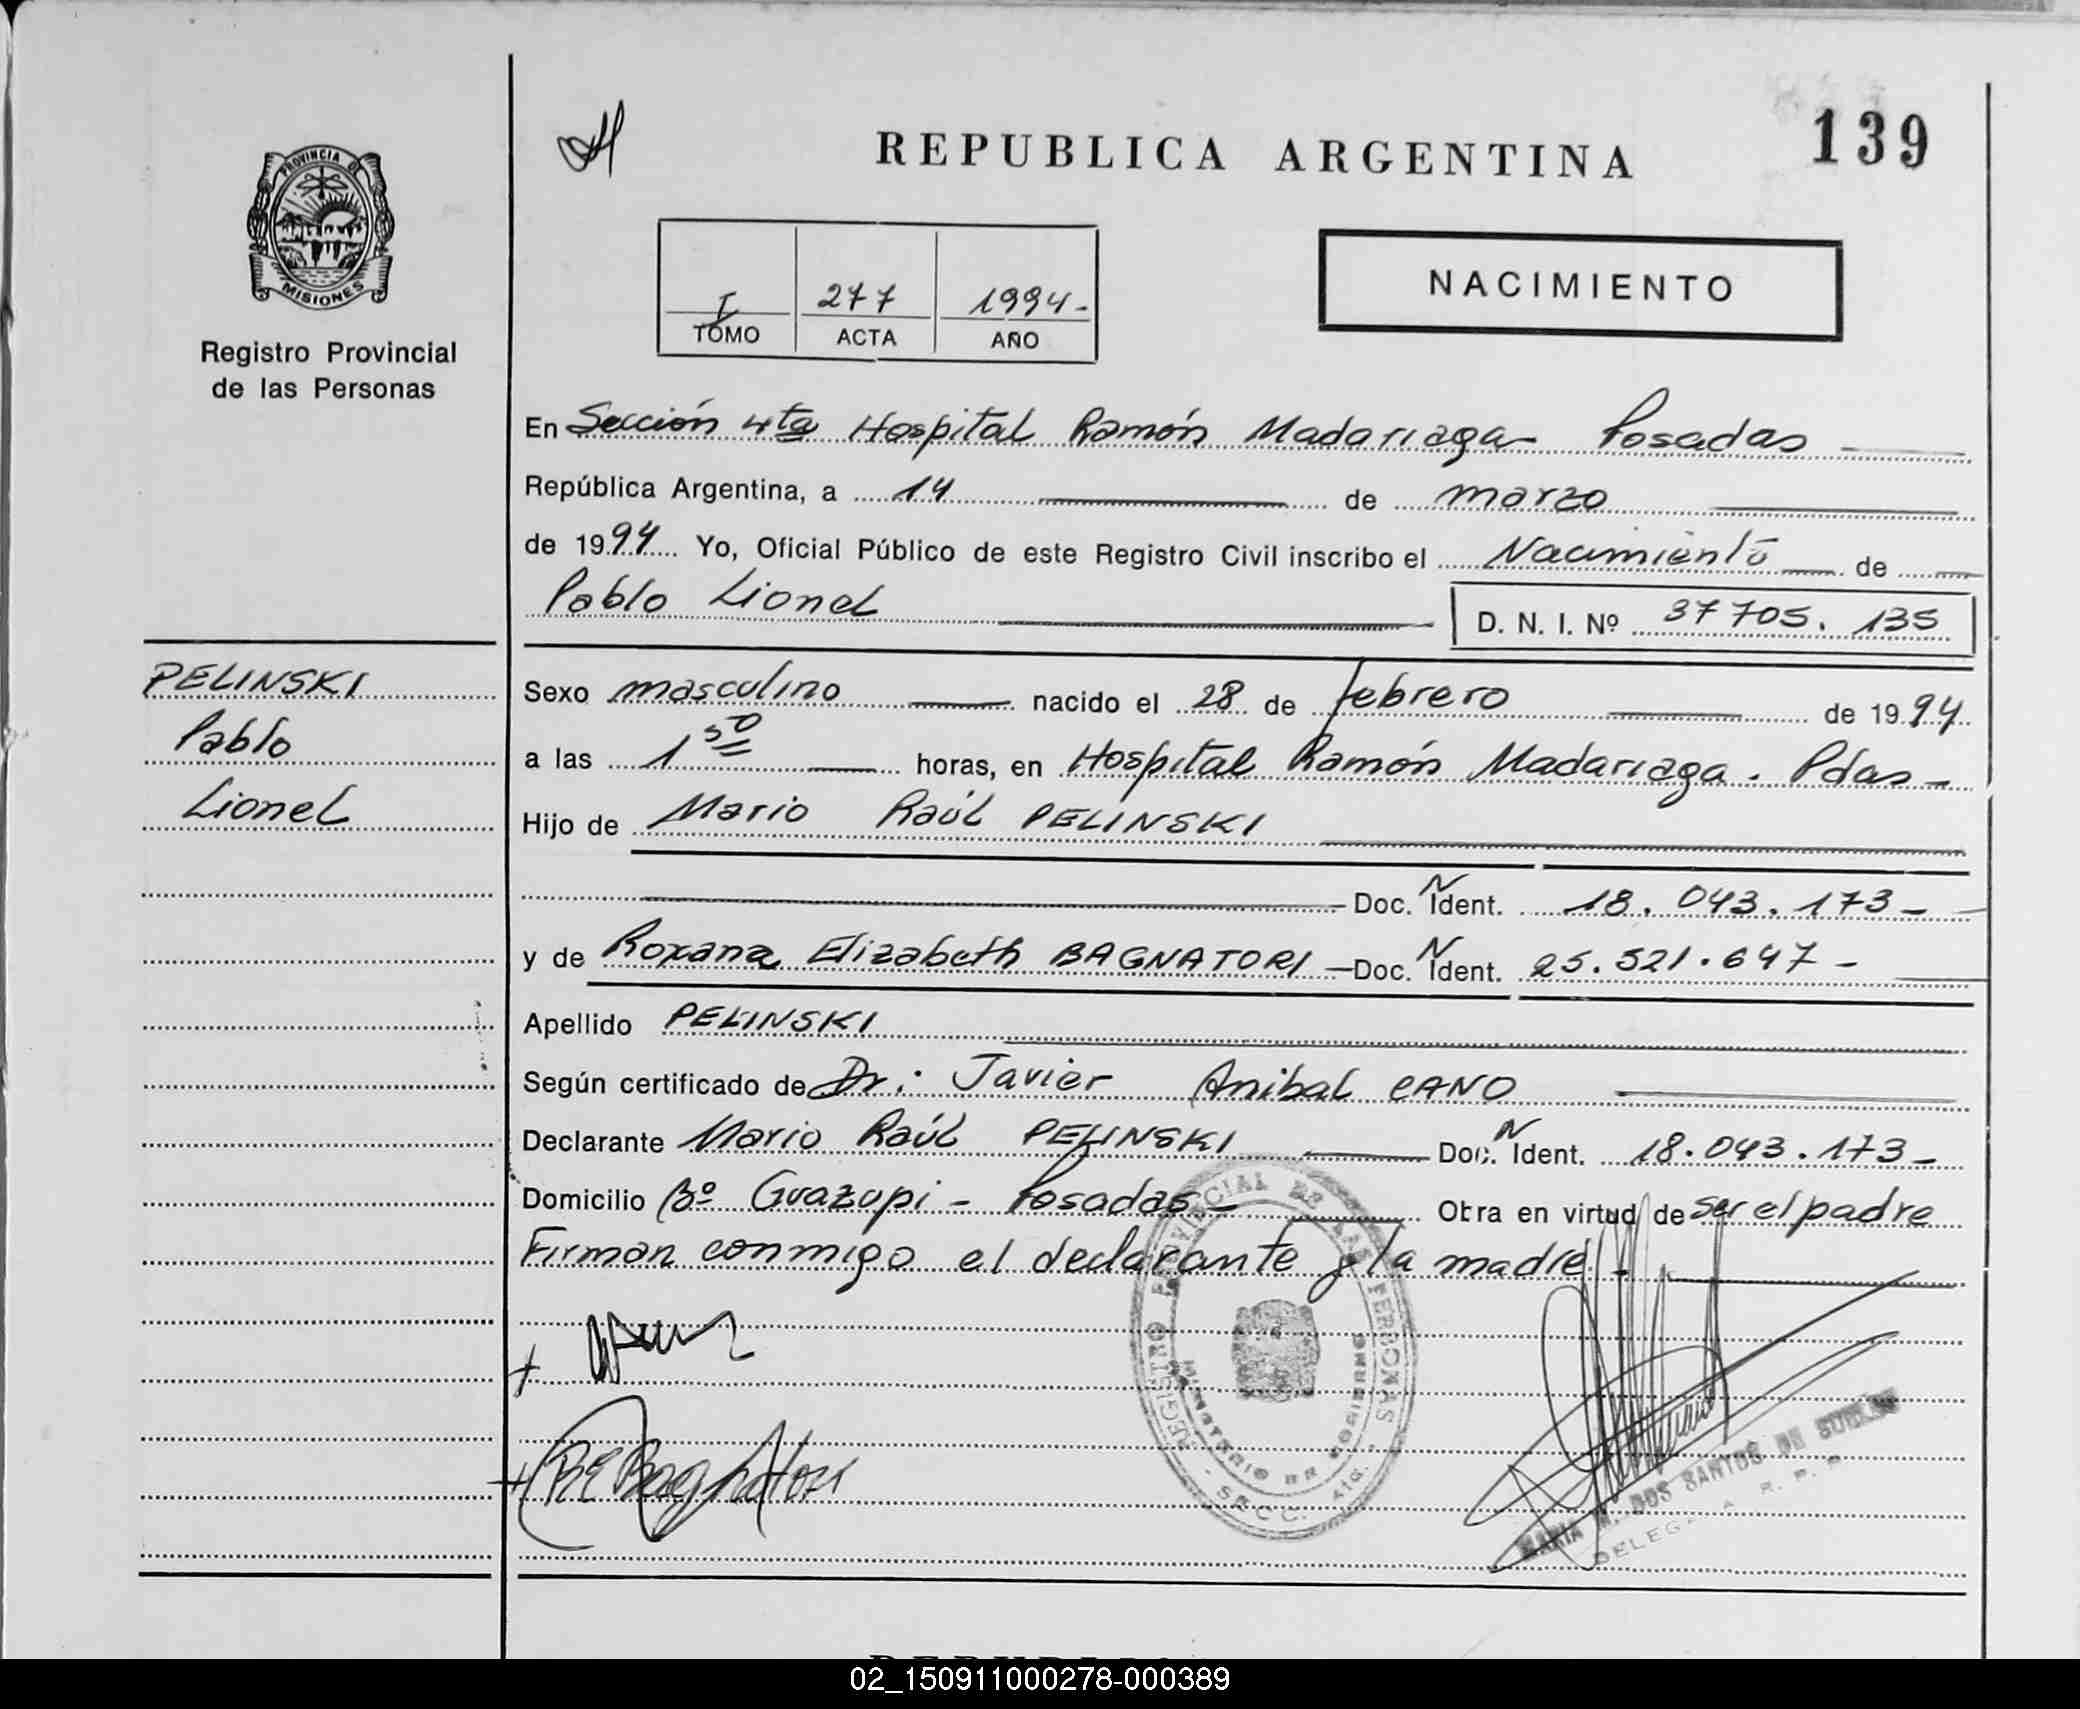 REPUBLICA ARGENTINA
139
PROVINCIA DE
MISIONES
Registro Provincial
de las Personas
I 277 1994-
TOMO ACTA AÑO
NACIMIENTO
En Sección 4ta Hospital Ramón Madariaga Posadas
República Argentina, a 14 de marzo
de 1994 Yo, Oficial Público de este Registro Civil inscribo el Nacimiento de
Pablo Lionel
D. N. I. Nº 37705.135
PELINSKI
Pablo
Lionel
Sexo masculino nacido el 28 de febrero de 1994
a las 1 50 horas, en Hospital Ramón Madariaga. Pdas-
Hijo de Mario Raúl PELINSKI
Doc. N Ident. 18.043.173-
y de Roxana Elizabeth BAGNATORI - Doc. N Ident. 25.521.647-
Apellido PELINSKI
Según certificado de Dr.: Javier Anibal CANO
Declarante Mario Raúl PELINSKI Doc. N Ident. 18.043.173-
Domicilio Bº Guazupi - Posadas- Obra en virtud de ser el padre
Firman conmigo el declarante y la madre.-
REGISTRO PROVINCIAL DE LAS PERSONAS
MINISTERIO DE GOBIERNO
S.R.C.C. 410.
RE Bagnatori
MARIA DOS SANTOS DE
DELEGADA R. P. P.
02_150911000278-000389